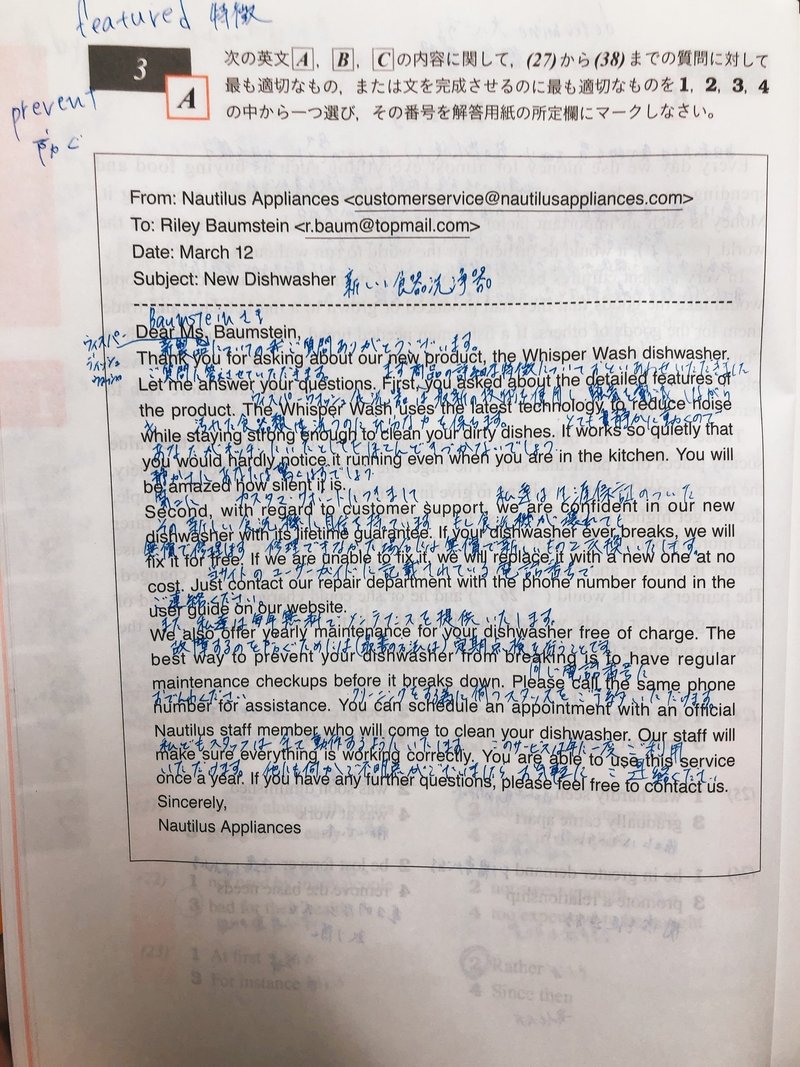 featured 特徴
3
A
次の英文A, B, Cの内容に関して, (27)から(38)までの質問に対して
最も適切なもの, または文を完成させるのに最も適切なものを1, 2, 3, 4
の中から一つ選び, その番号を解答用紙の所定欄にマークしなさい。
prevent
防ぐ
From: Nautilus Appliances <customerservice@nautilusappliances.com>
To: Riley Baumstein <r.baum@topmail.com>
Date: March 12
Subject: New Dishwasher 新しい食器洗浄器
Baumstein さま
Dear Ms. Baumstein,
新製品についての ご質問ありがとうございます。
Thank you for asking about our new product, the Whisper Wash dishwasher.
ご質問に答えさせていただきます。 まず商品の詳細な特徴についておといあわせいただきました
Let me answer your questions. First, you asked about the detailed features of
the product. The Whisper Wash uses the latest technology to reduce noise
while staying strong enough to clean your dirty dishes. It works so quietly that
you would hardly notice it running even when you are in the kitchen. You will
be amazed how silent it is.
カスタマーサポートにつきまして 私達は生涯保証のついた
Second, with regard to customer support, we are confident in our new
その新しい食洗機に自信を持っています もし食洗機が壊れても
dishwasher with its lifetime guarantee. If your dishwasher ever breaks, we will
無償で修理します 修理できなかった場合には無償で新しいものに交換いたします。
fix it for free. If we are unable to fix it, we will replace it with a new one at no
サイトのユーザーガイドに記載されている電話番号で
cost. Just contact our repair department with the phone number found in the
ご連絡ください
user guide on our website.
また 私達は毎年無料でメンテナンスを提供いたします。
We also offer yearly maintenance for your dishwasher free of charge. The
best way to prevent your dishwasher from breaking is to have regular
同じ電話番号に
maintenance checkups before it breaks down. Please call the same phone
おでんわください
number for assistance. You can schedule an appointment with an official
Nautilus staff member who will come to clean your dishwasher. Our staff will
このサービスは年に一度ご利用
make sure everything is working correctly. You are able to use this service
いただけます。
once a year. If you have any further questions, please feel free to contact us.
Sincerely,
Nautilus Appliances